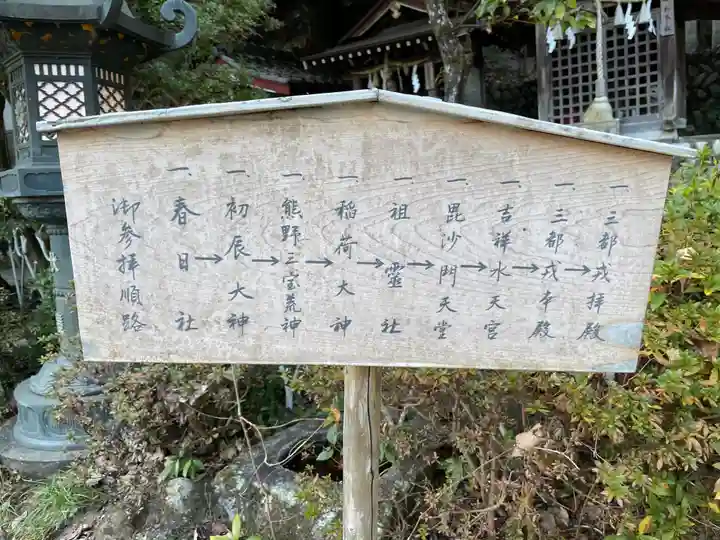 御参拝順路
一.春日社→
一.初辰大神→
一.熊野三宝荒神→
一.稲荷大神→
一.祖靈社→
一.毘沙門天堂→
一.吉祥水天宮→
一.三都戎本殿→
一.三都戎拝殿